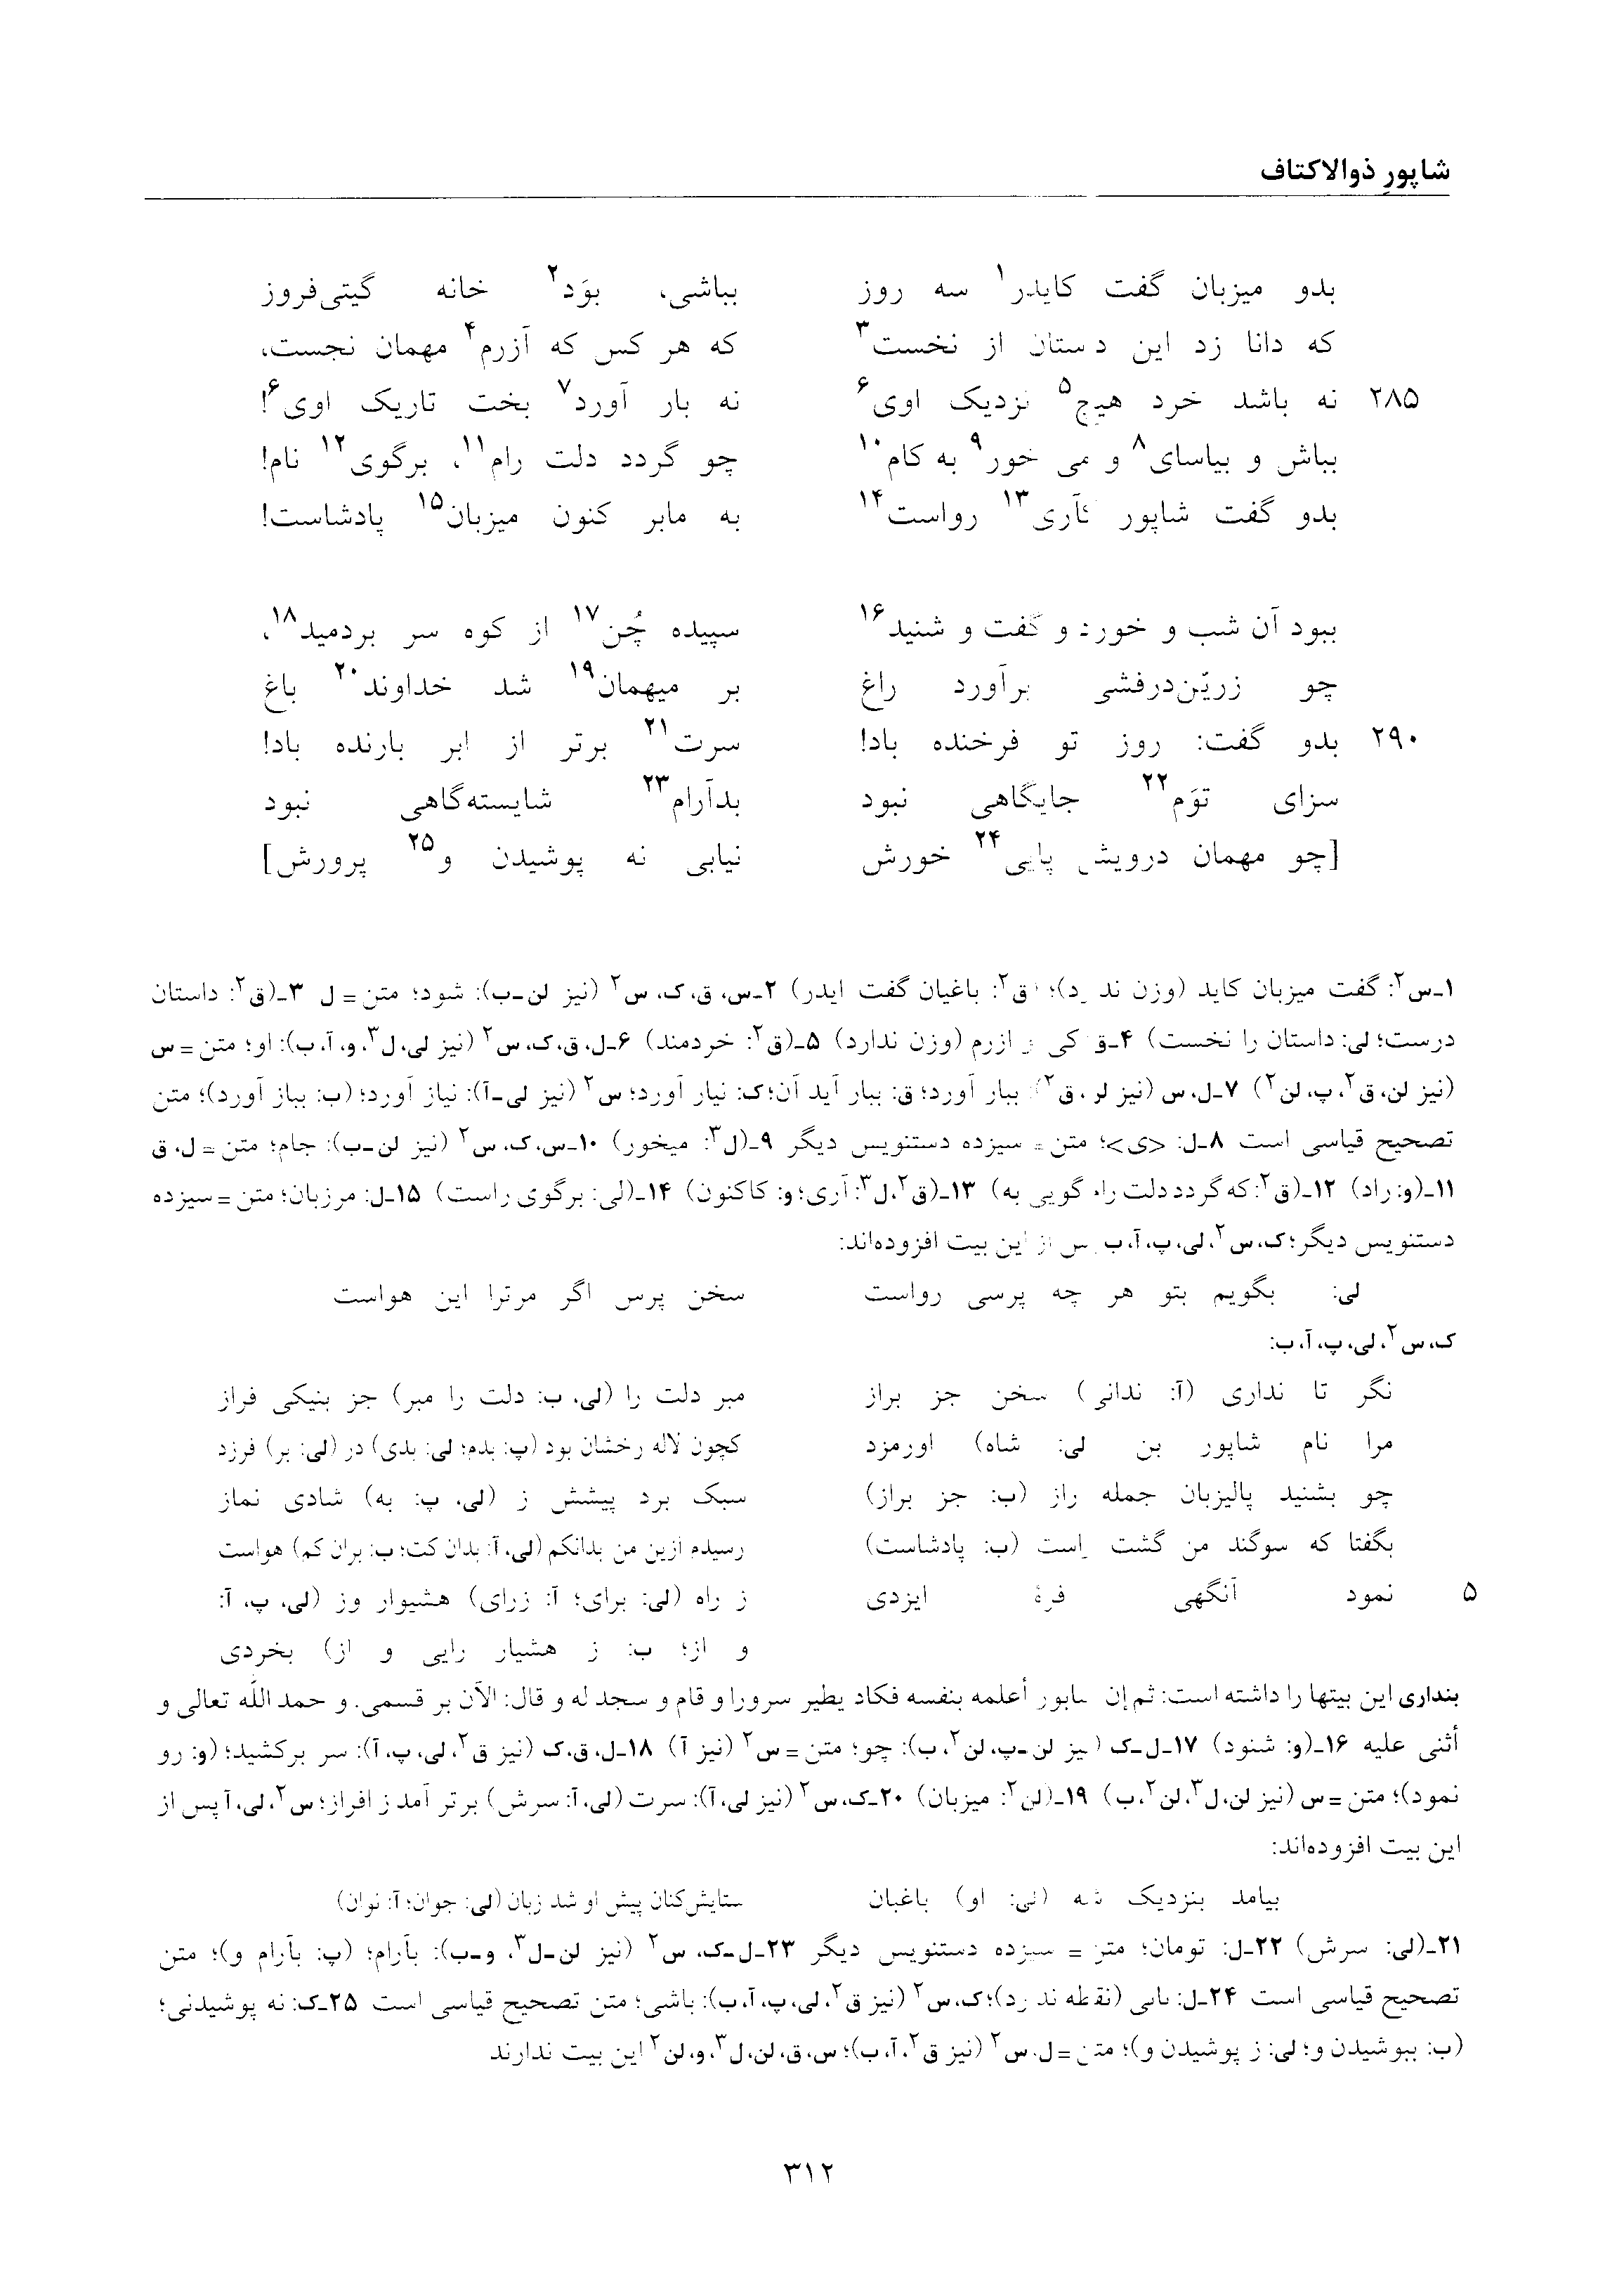 شاپورِ ذوالاکتاف
بدو میزبان گفت کایدر۱ سه روز بباشی، بوَد۲ خانه گیتی‌فروز
که دانا زد این دستان از نخست۳ که هر کس که آزرم۴ مهمان نجست،
۲۸۵ نه باشد خرد هیچ۵ نزدیک اوی۶ نه بار آورد۷ بخت تاریک اوی۶!
بباش و بیاسای۸ و می خور۹ به کام۱۰ چو گردد دلت رام۱۱، برگوی۱۲ نام!
بدو گفت شاپور کآری۱۳ رواست۱۴ به مابر کنون میزبان۱۵ پادشاست!
ببود آن شب و خورد و گفت و شنید۱۶ سپیده چُن۱۷ از کوه سر بردمید۱۸،
چو زریّن‌درفشی برآورد راغ بر میهمان۱۹ شد خداوند۲۰ باغ
۲۹۰ بدو گفت: روز تو فرخنده باد! سرت۲۱ برتر از ابر بارنده باد!
سزای توَم۲۲ جایگاهی نبود بدآرام۲۳ شایسته‌گاهی نبود
[چو مهمان درویش پایی۲۴ خورش نیابی نه پوشیدن و۲۵ پرورش]
۱ـ‌س۲: گفت میزبان کاید (وزن ندارد)؛ (ق۲: باغبان گفت ایدر) ۲ـ‌س، ق، ک، س۲ (نیز لن‌ـ‌ب): شود؛ متن = ل ۳ـ(ق۲: داستان
درست؛ لی: داستان را نخست) ۴ـ‌ق کی ازرم (وزن ندارد) ۵ـ(ق۲: خردمند) ۶ـ‌ل، ق، ک، س۲ (نیز لی، ل۳، و، آ، ب): او؛ متن = س
(نیز لن، ق۲، پ، لن۲) ۷ـ‌ل، س (نیز لن، ق۲): ببار آورد؛ ق: ببار آید آن؛ ک: نیار آورد؛ س۲ (نیز لی‌ـ‌آ): نیاز آورد؛ (ب: بباز آورد)؛ متن
تصحیح قیاسی است ۸ـ‌ل: <ی>؛ متن = سیزده دستنویس دیگر ۹ـ(ل۳: میخور) ۱۰ـ‌س، ک، س۲ (نیز لن‌ـ‌ب): جام؛ متن = ل، ق
۱۱ـ(و: راد) ۱۲ـ(ق۲: که گردد دلت رام گویی به) ۱۳ـ(ق۲، ل۳: آری؛ و: کاکنون) ۱۴ـ(لی: برگوی راست) ۱۵ـ‌ل: مرزبان؛ متن = سیزده
دستنویس دیگر؛ ک، س۲، لی، پ، آ، ب پس از این بیت افزوده‌اند:
لی: بگویم بتو هر چه پرسی رواست سخن پرس اگر مرترا این هواست
ک، س۲، لی، پ، آ، ب:
نگر تا نداری (آ: ندانی) سخن جز براز مبر دلت را (لی، ب: دلت را مبر) جز بنیکی فراز
مرا نام شاپور بن لی: شاه) اورمزد کچون لاله رخشان بود (پ: بدم؛ لی: بدی) در (لی: بر) فرزد
چو بشنید پالیزبان جمله راز (ب: جز براز) سبک برد پیشش ز (لی، پ: به) شادی نماز
بگفتا که سوگند من گشت راست (ب: پادشاست) رسیدم ازین من بدانکم (لی، آ: بدان کت؛ ب: بران کم) هواست
۵ نمود آنگهی فرهٔ ایزدی ز راه (لی: برای؛ آ: زرای) هشیوار وز (لی، پ، آ:
و از؛ ب: ز هشیار رایی و از) بخردی
بنداری این بیتها را داشته است: ثم إن سابور أعلمه بنفسه فکاد یطیر سرورا و قام و سجد له و قال: الآن بر قسمی. و حمد اللّه تعالی و
أثنی علیه ۱۶ـ(و: شنود) ۱۷ـ‌ل‌ـ‌ک (نیز لن‌ـ‌پ، لن۲، ب): چو؛ متن = س۲ (نیز آ) ۱۸ـ‌ل، ق، ک (نیز ق۲، لی، پ، آ): سر برکشید؛ (و: رو
نمود)؛ متن = س (نیز لن، ل۳، لن۲، ب) ۱۹ـ(لن۲: میزبان) ۲۰ـ‌ک، س۲ (نیز لی، آ): سرت (لی، آ: سرش) برتر آمد ز افراز؛ س۲، لی، آ پس از
این بیت افزوده‌اند:
بیامد بنزدیک شه (لی: او) باغبان ستایش‌کنان پیش او شد زبان (لی: جوان؛ آ: نوان)
۲۱ـ(لی: سرش) ۲۲ـ‌ل: تومان؛ متن = سیزده دستنویس دیگر ۲۳ـ‌ل‌ـ‌ک، س۲ (نیز لن‌ـ‌ل۳، و‌ـ‌ب): بآرام؛ (پ: بآرام و)؛ متن
تصحیح قیاسی است ۲۴ـ‌ل: (نقطه ندارد)؛ ک، س۲ (نیز ق۲، لی، پ، آ، ب): باشی؛ متن تصحیح قیاسی است ۲۵ـ‌ک: نه پوشیدنی؛
(ب: ببوشیدن و؛ لی: ز پوشیدن و)؛ متن = ل، س۲ (نیز ق۲، آ، ب)؛ س، ق، لن، ل۳، و، لن۲ این بیت ندارند
۳۱۲